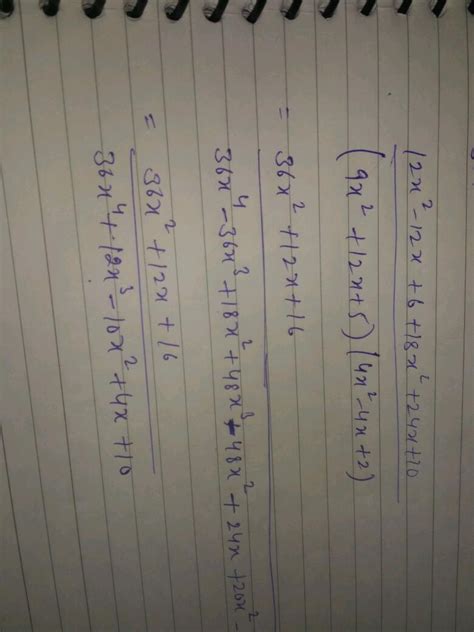 12x² - 12x + 6 + 18x² + 24x + 10
(9x² + 12x + 5) (4x² - 4x + 2)
= 36x² + 12x + 16
36x⁴ - 36x³ + 18x² + 48x³ - 48x² + 24x + 20x² -
= 36x² + 12x + 16
36x⁴ + 12x³ - 10x² + 4x + 10